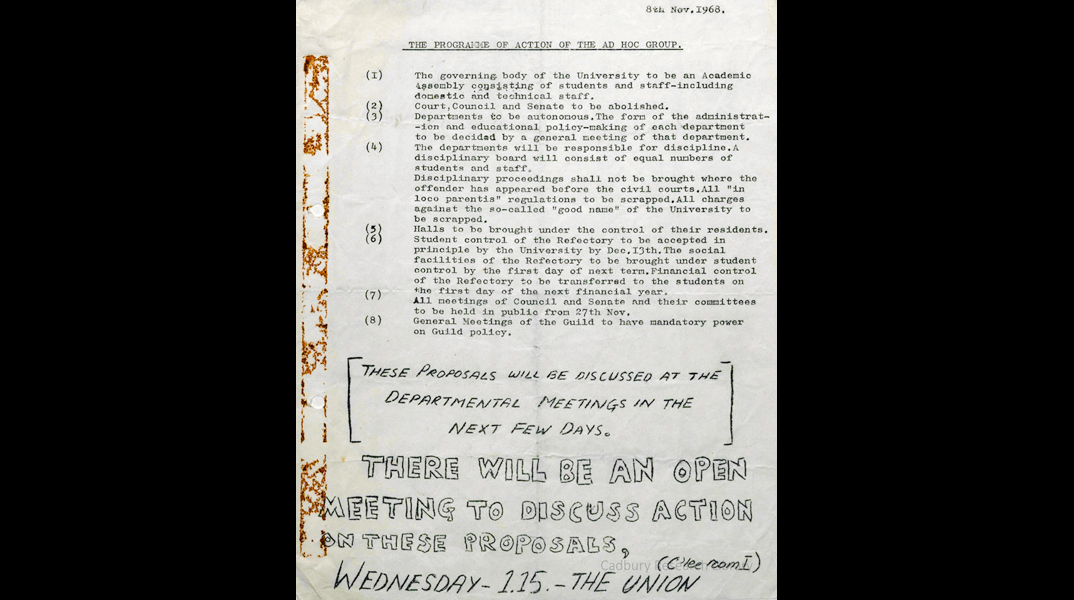 8th Nov.1968.
THE PROGRAMME OF ACTION OF THE AD HOC GROUP.
(I) The governing body of the University to be an Academic
Assembly consisting of students and staff-including
domestic and technical staff.
(2) Court,Council and Senate to be abolished.
(3) Departments to be autonomous.The form of the administrat-
-ion and educational policy-making of each department
to be decided by a general meeting of that department.
(4) The departments will be responsible for discipline.A
disciplinary board will consist of equal numbers of
students and staff.
Disciplinary proceedings shall not be brought where the
offender has appeared before the civil courts.All "in
loco parentis" regulations to be scrapped.All charges
against the so-called "good name" of the University to
be scrapped.
(5) Halls to be brought under the control of their residents.
(6) Student control of the Refectory to be accepted in
principle by the University by Dec.13th.The social
facilities of the Refectory to be brought under student
control by the first day of next term.Financial control
of the Refectory to be transferred to the students on
the first day of the next financial year.
(7) All meetings of Council and Senate and their committees
to be held in public from 27th Nov.
(8) General Meetings of the Guild to have mandatory power
on Guild policy.
THESE PROPOSALS WILL BE DISCUSSED AT THE
DEPARTMENTAL MEETINGS IN THE
NEXT FEW DAYS.
THERE WILL BE AN OPEN
MEETING TO DISCUSS ACTION
ON THESE PROPOSALS,
(C'tee room I)
WEDNESDAY - 1.15. - THE UNION
Cadbury